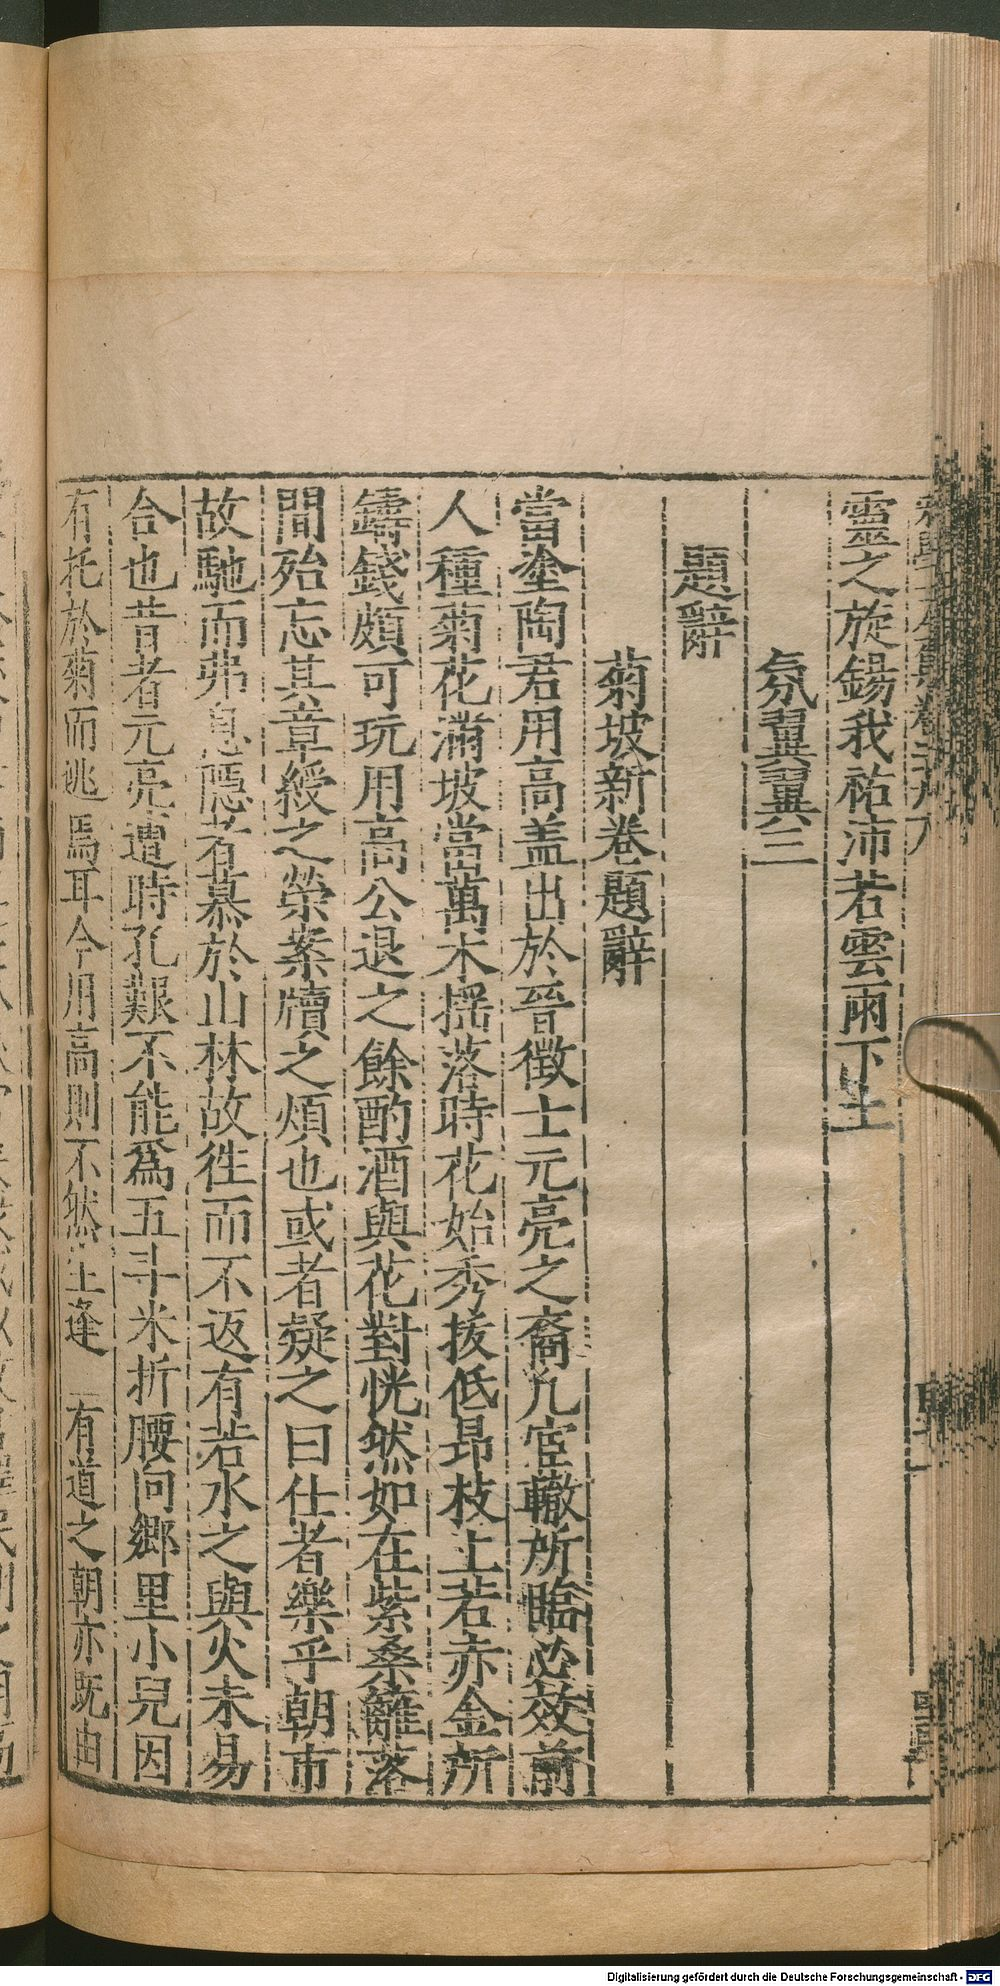 靈之旋錫我祐沛若雲雨下土
氛翼翼三
題辭
菊坡新卷題辭
當塗陶君用高盖出於晉徵士元亮之裔凡宦轍所臨必效前
人種菊花滿坡當萬木揺落時花始秀拔低昂枝上若赤金所
鑄錢頗可玩用高公退之餘酌酒與花對恍然如在紫桑籬落
間殆忘其章綬之榮案牘之煩也或者疑之曰仕者樂乎朝市
故馳而弗息隱者慕於山林故徃而不返有若水之與火未易
合也昔者元亮遭時孔艱不能爲五斗米折腰向郷里小兒因
有托於菊而逃焉耳今用高則不然生逢 有道之朝亦既由
Digitalisierung gefördert durch die Deutsche Forschungsgemeinschaft - DFG